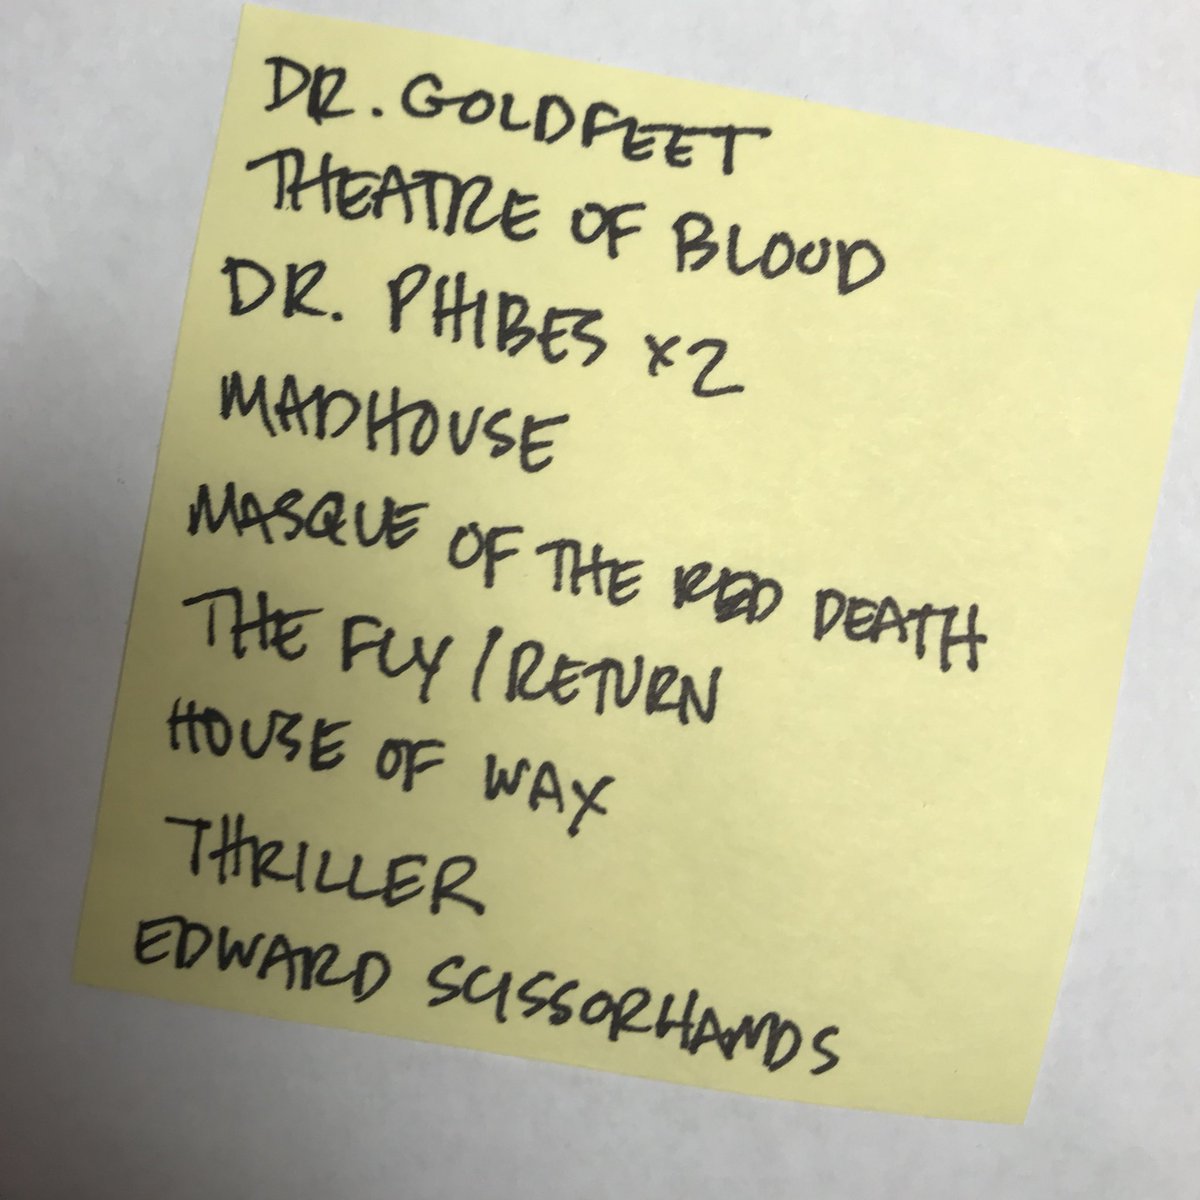 DR. GOLDFEET
THEATRE OF BLOOD
DR. PHIBES x2
MADHOUSE
MASQUE OF THE RED DEATH
THE FLY / RETURN
HOUSE OF WAX
THRILLER
EDWARD SCISSORHANDS